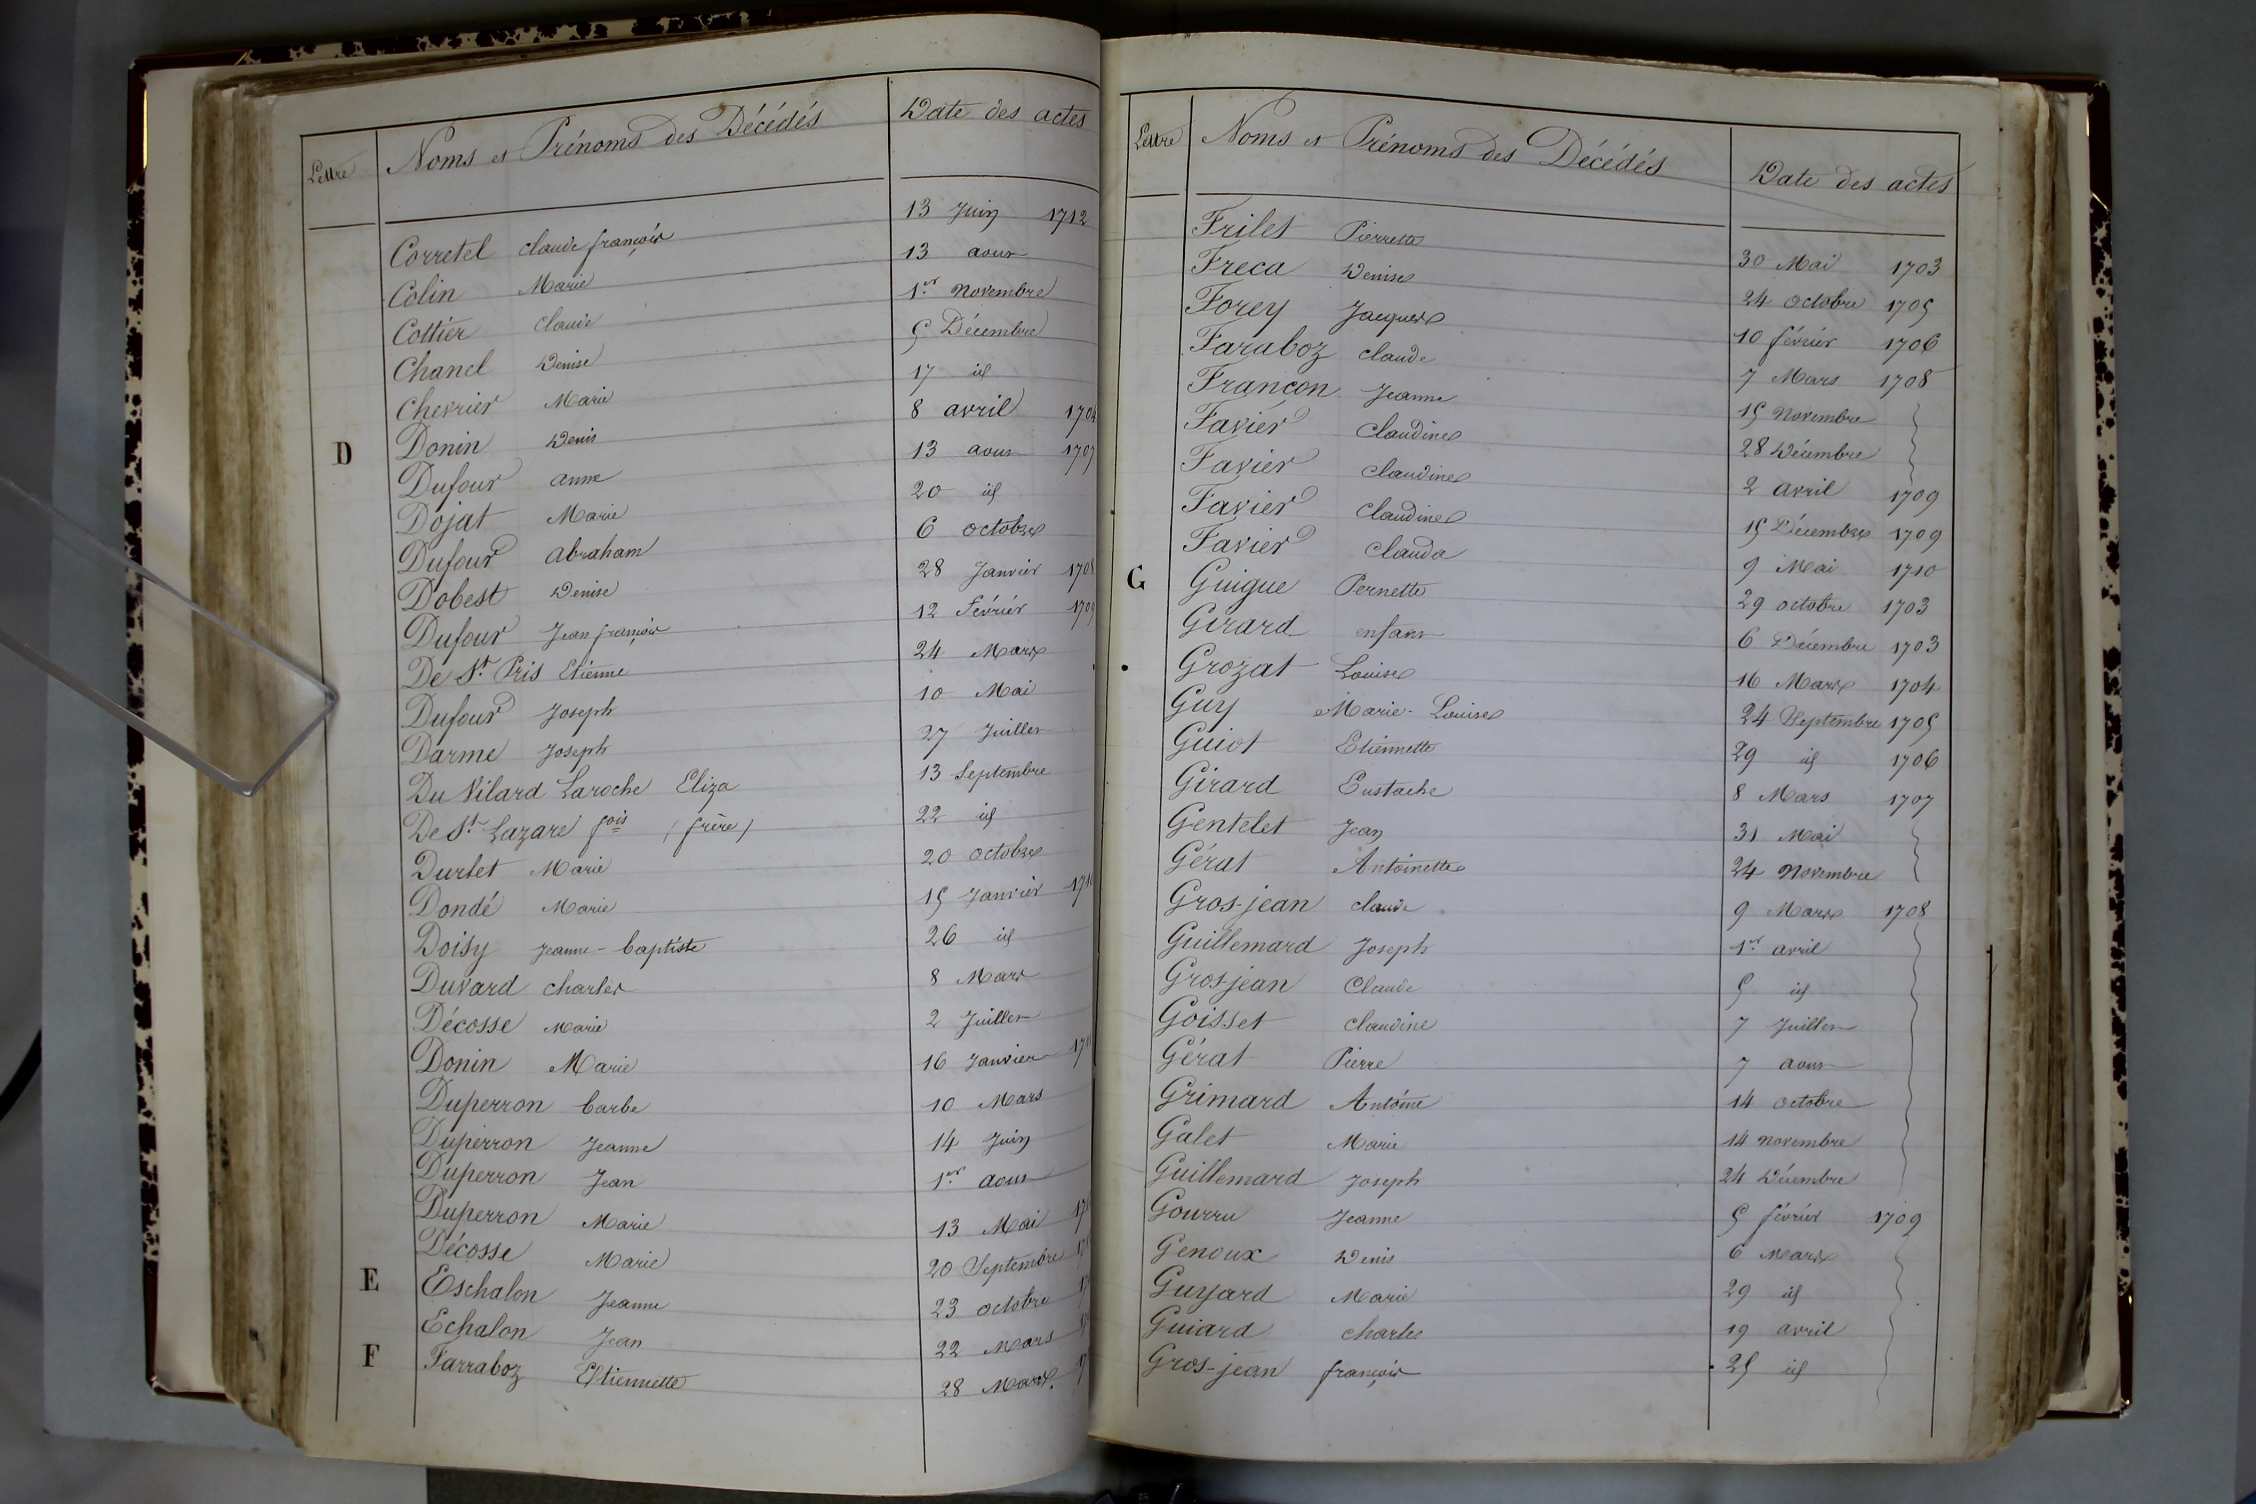 Lettre Noms et Prénoms des Décédés Date des actes
Corretel Claude françois 13 Juin 1712
Colin Marie 13 aout
Cottier Claude 1er Novembre
Chanel Denise 5 Décembre
Chevrier Marie 17 id
D Donin Denis 8 avril 1704
Dufour anne 13 aout 1707
Dojat Marie 20 id
Dufour abraham 6 octobre
Dobest Denise 28 Janvier 1708
Dufour Jean françois 12 Février 1709
De St. Pris Etienne 24 Mars
Dufour Joseph 10 Mai
Darme Joseph 27 Juillet
Du Vilard Laroche Eliza 13 Septembre
De St. Lazare fois (frère) 22 id
Durlet Marie 20 octobre
Dondé Marie 15 Janvier
Doisy Jeanne-baptiste 26 id
Duvard charles 8 Mars
Décosse Marie 2 Juillet
Donin Marie 16 Janvier
Duperron barbe 10 Mars
Duperron Jeanne 14 Juin
Duperron Jean 1er aout
Duperron Marie 13 Mai
Décosse Marie 20 Septembre
E Eschalon Jeanne 23 octobre
Echalon Jean 22 Mars
F Farraboz Etiennette 28 Mars
Lettre Noms et Prénoms des Décédés Date des actes
Frilet Pierrette 30 Mai 1703
Freca Denise 24 octobre 1705
Forey Jacques 10 février 1706
Faraboz claude 7 Mars 1708
Françon Jeanne 15 Novembre
Favier Claudine 28 Décembre
Favier Claudine 2 avril 1709
Favier Claudine 15 Décembre 1709
Favier Clauda 9 Mai 1710
G Guigue Pernette 29 octobre 1703
Girard enfant 6 Décembre 1703
Grozat Louise 16 Mars 1704
Guy Marie-Louise 24 Septembre 1705
Guiot Etiennette 29 id 1706
Girard Eustache 8 Mars 1707
Gentelet Jean 31 Mai
Gérat Antoinette 24 Novembre
Gros-jean claude 9 Mars 1708
Guillemard Joseph 1er avril
Gros-jean Claude 5 id
Goisset Claudine 7 Juillet
Gérat Pierre 7 aout
Grimard Antoine 14 octobre
Galet Marie 14 novembre
Guillemard Joseph 24 Décembre
Gourru Jeanne 5 février 1709
Genoux Denis 6 Mars
Guyard Marie 29 id
Guiard charles 19 avril
Gros-jean françois 25 id